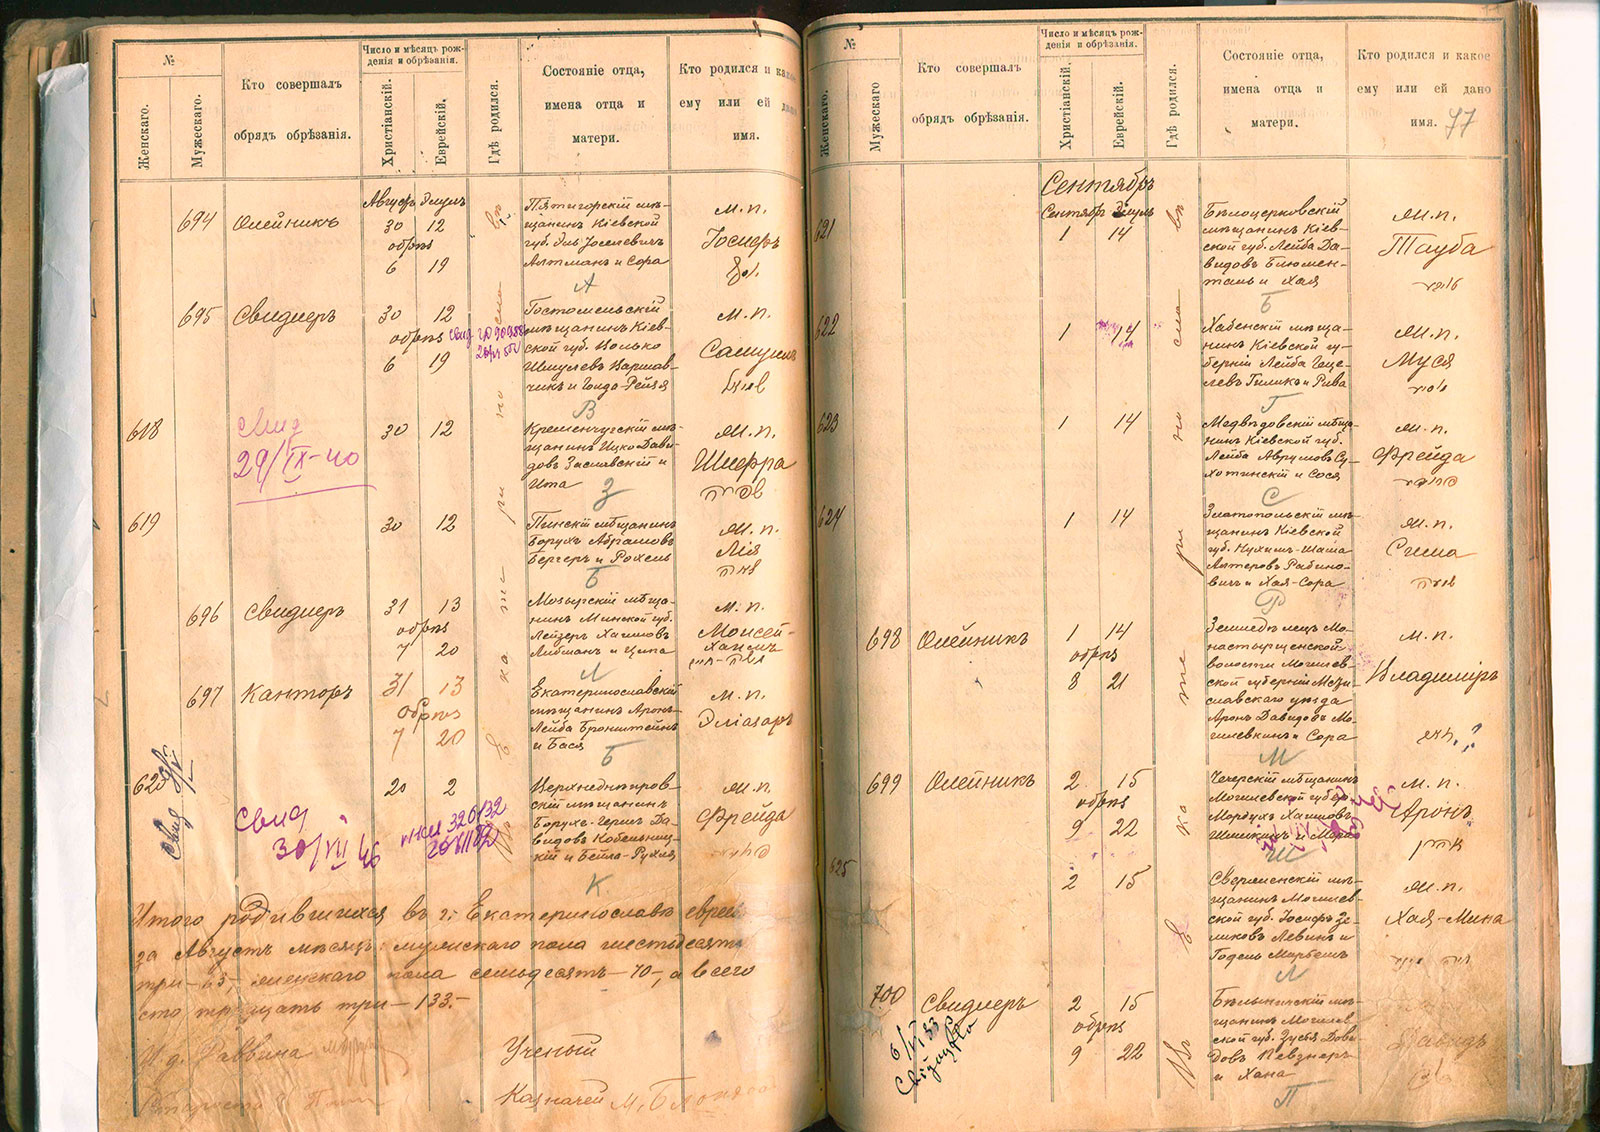 №
Женскаго.
Мужескаго.
Кто совершалъ
обрядъ обрѣзанія.
Число и мѣсяцъ рож-
денія и обрѣзанія.
Христіанскій.
Еврейскій.
Гдѣ родился.
Состояніе отца,
имена отца и
матери.
Кто родился и
ему или ей
имя.
694
Олейникъ
30 12
обрѣз
6 19
Пятигорскій мѣ-
щанинъ Кіевской
губ. Эль Іоселевичъ
Алтманъ и Сора
А
м.п.
Іосифъ
695
Свидлеръ
30 12
обрѣз
6 19
Гостомельскій
мѣщанинъ Кіев-
ской губ.
Шмулевъ Варшав-
чикъ и Голда-Рейзя
В
м.п.
Самуилъ
618
29/IX-40
30 12
Кременчугскій мѣ-
щанинъ Ицко Дави-
довъ Заславскій и
Ита
З
ж.п.
Шифра
שפרה
619
30 12
Пинскій мѣщанинъ
Борухъ Абрамовъ
Бергеръ и Рохель
Б
ж.п.
Лія
לאה
696
Свидлеръ
31 13
обрѣз
7 20
Мозырскій мѣща-
нинъ Минской губ.
Лейзеръ Хаимовъ
Либманъ и Ципа
Л
м.п.
Моисей-
Хаимъ
697
Канторъ
31 13
обрѣз
7 20
Екатеринославскій
мѣщанинъ Аронъ-
Лейба Бронштейнъ
и Бася
Б
м.п.
Эліазаръ
620
20 2
Верхнеднѣпров-
скій мѣщанинъ
Борухъ-Гершъ Да-
видовъ Кобельниц-
кій и Бейла-Рухля
К.
ж.п.
Фрейда
Въ Екатеринославѣ
Итого родившихся въ г. Екатеринославѣ евре
за Августъ мѣсяцъ: мужскаго пола шестьдесятъ
три-63-, женскаго пола семьдесятъ-70-, а всего
сто тридцать три-133.-
И.д. Раввина
Ученый
Староста
Казначей
№
Женскаго.
Мужескаго
Кто совершалъ
обрядъ обрѣзанія.
Число и мѣсяцъ рож-
денія и обрѣзанія.
Христіанскій.
Еврейскій.
Гдѣ родился.
Состояніе отца,
имена отца и
матери.
Кто родился и какое
ему или ей дано
имя.
77
Сентябрь
621
Сентябрь Элулъ
1 14
Бѣлоцерковскій
мѣщанинъ Кіев-
ской губ. Лейба Да-
видовъ Блюмен-
таль и Хая
Б
ж.п.
Тауба
622
1 14
Хабенскій мѣща-
нинъ Кіевской гу-
берніи Лейба Геце-
левъ Гликъ и Рива
Г
ж.п.
Муся
623
1 14
Медвѣдовскій мѣща-
нинъ Кіевской губ.
Лейба Аврумовъ Су-
хотинскій и Сося
С
ж.п.
Фрейда
624
1 14
Златопольскій мѣ-
щанинъ Кіевской
губ. Нухимъ-Шая
Алтеровъ Рабино-
вичъ и Хая-Сора
Р
ж.п.
Сима
698
Олейникъ
1 14
обрѣз
8 21
Земледѣлецъ Мо-
настырщенской
волости Могилев-
ской губерніи Мсти-
славскаго уѣзда
Аронъ Давидовъ Мо-
гилевкинъ и Сора
М
м.п.
Владиміръ
699
Олейникъ
2 15
обрѣз
9 22
Чечерскій мѣщанинъ
Могилевской губер.
Мордухъ Хаимовъ
м.п.
Аронъ
אהרן
625
2 15
щанинъ Могилев-
ской губ. Іосифъ Зе-
ликовъ Левинъ и
Л
ж.п.
Хая-Мина
700
Свидлеръ
2 15
обрѣз
9 22
Бѣлыничскій мѣ-
щанинъ Могилев-
ской губ. Зуся Дови-
довъ Певзнеръ
и Хана
П
Давидъ
Въ Екатеринославѣ